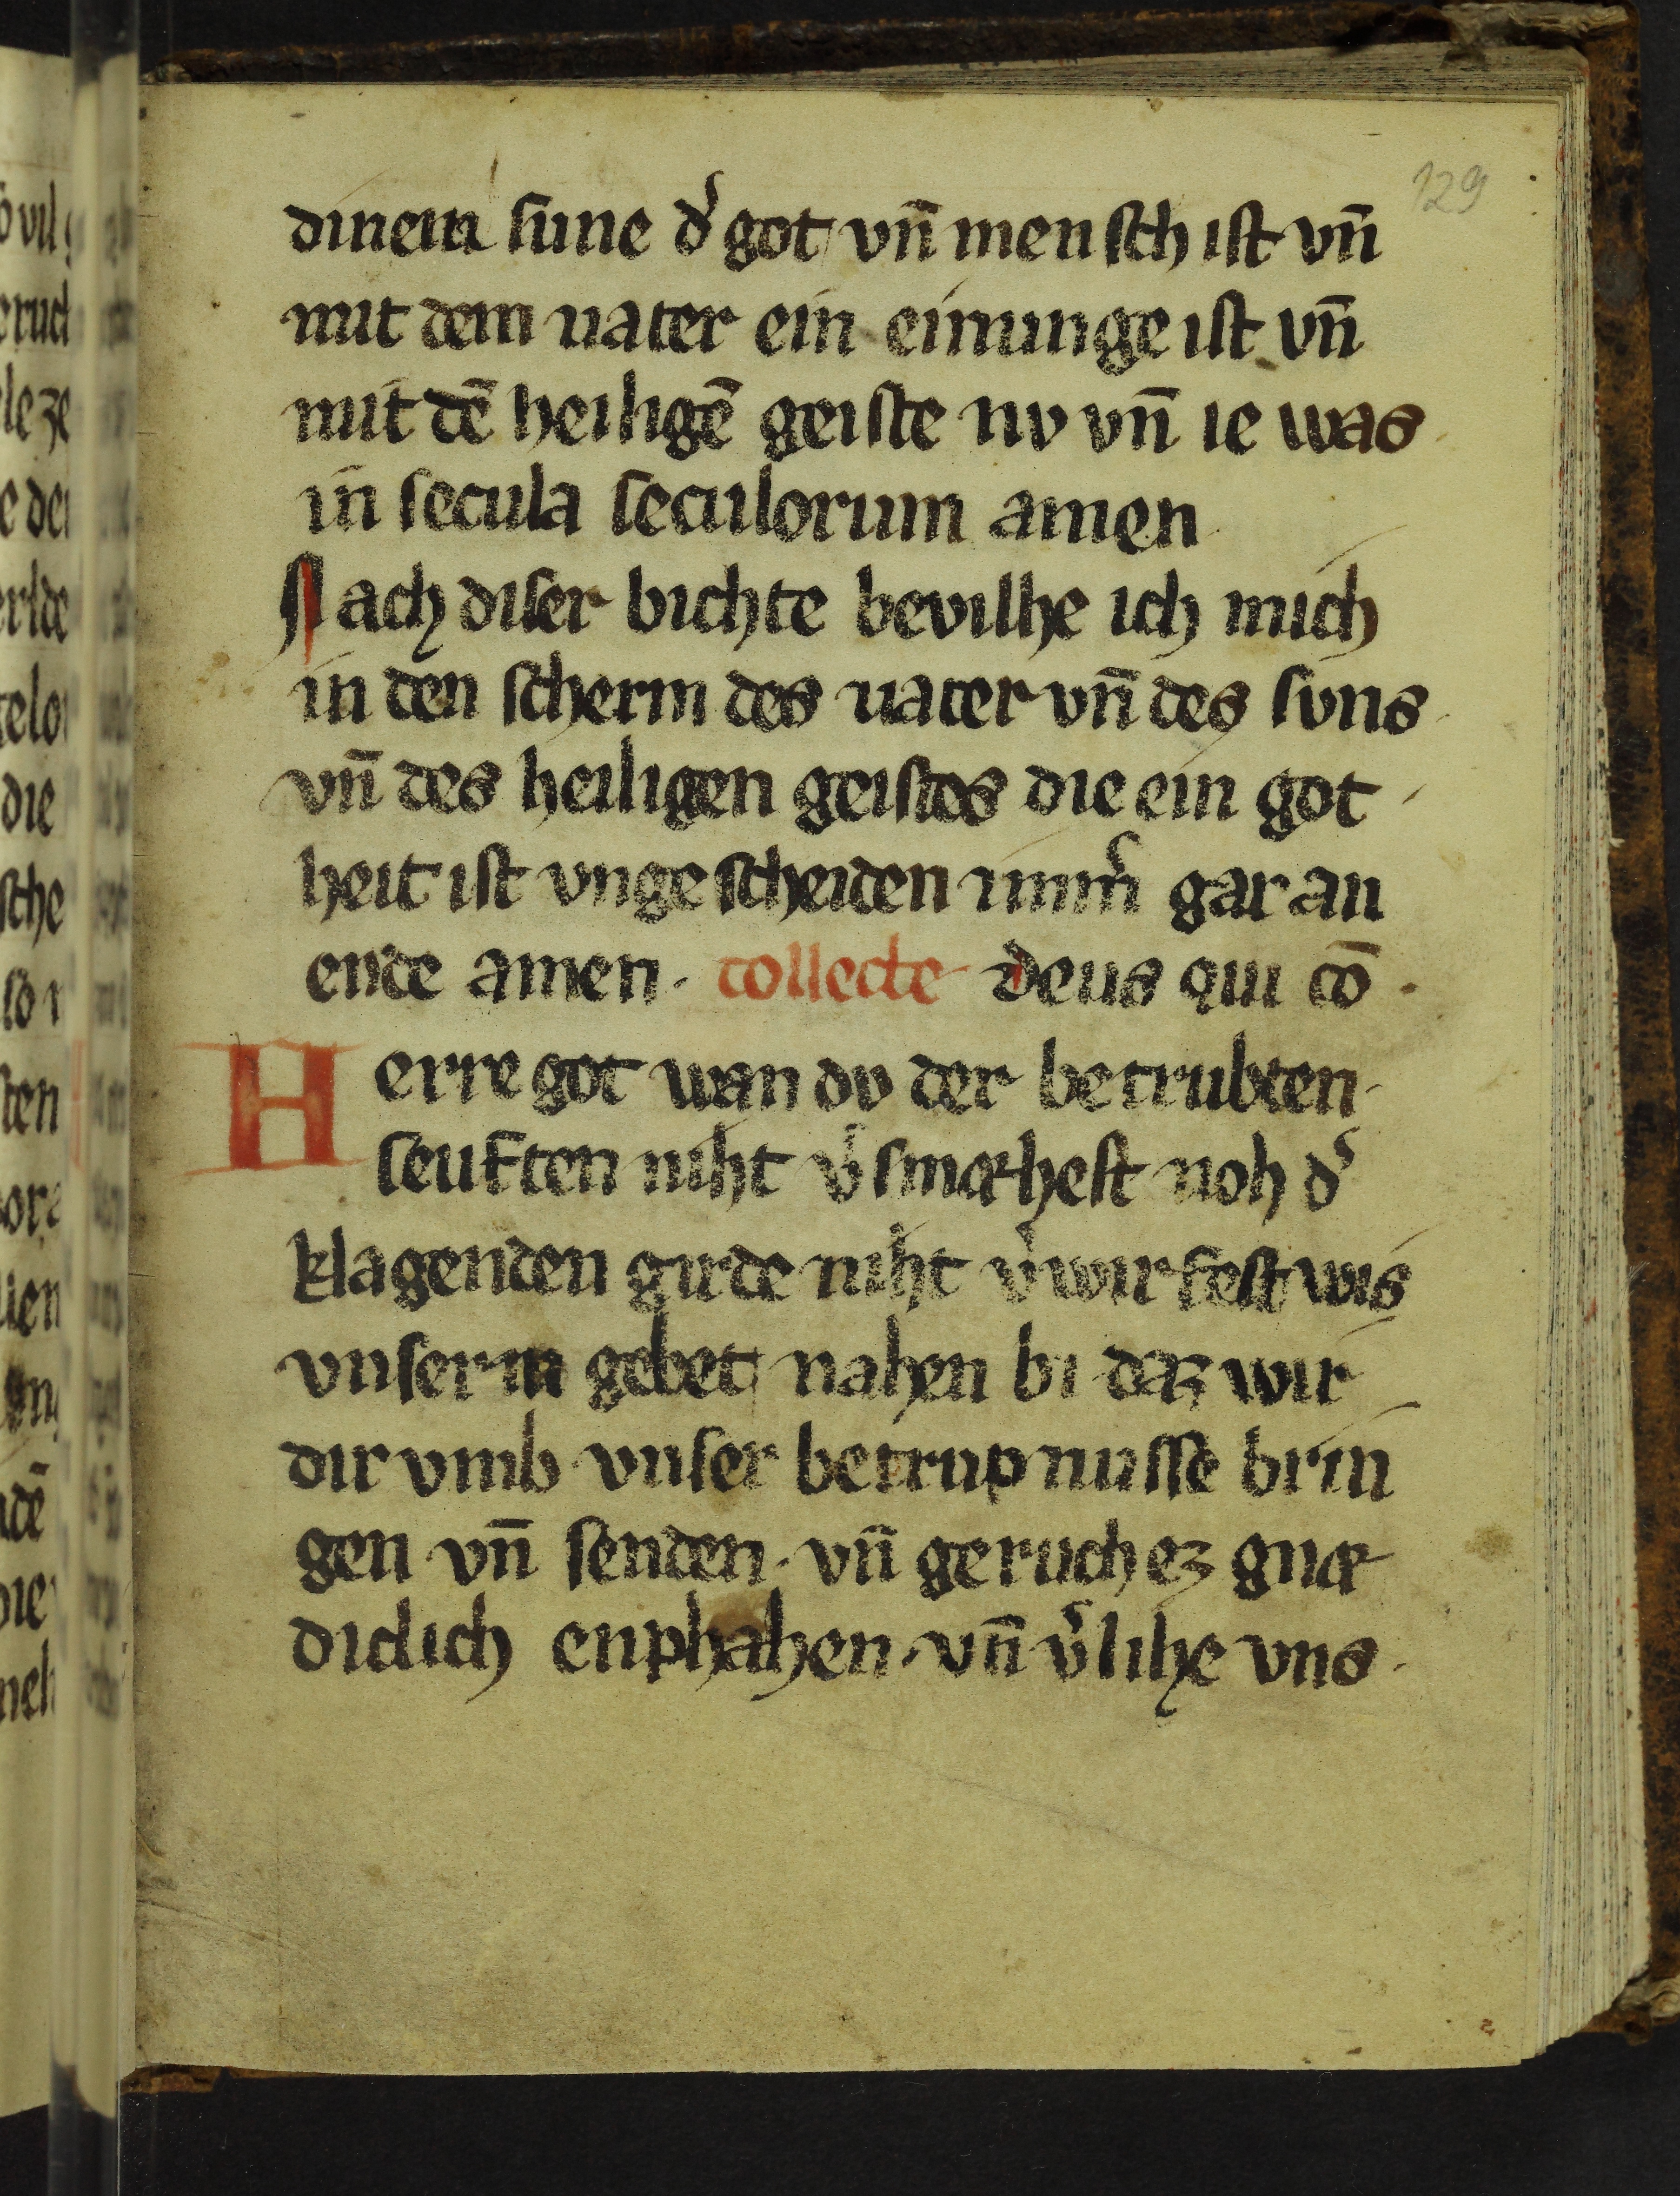 129
dinem sune d͛ got vn̄ mensch ist vn̄
mit dem uater ein einunge ist vn̄
mit dē heiligē geiste nv vn̄ ie was
in secula seculorum amen
Nach diser bichte bevilhe ich mich
in den scherm des uater vn̄ des svns
vn̄ des heiligen geistes die ein got
heit ist vngescheiden imm͛ gar an
ende amen. collecte deus qui cō
Herre got wan dv der betrubten
seuften niht v͛smæhest noh d͛
klagenden girde niht v͛wirfest wis
vnserm gebet nahen bi daz wir
dir vmb vnser betrupnusse brin
gen vn̄ senden. vn̄ geruch ez gnæ
diclich enphahen. vn̄ v͛lihe vns.